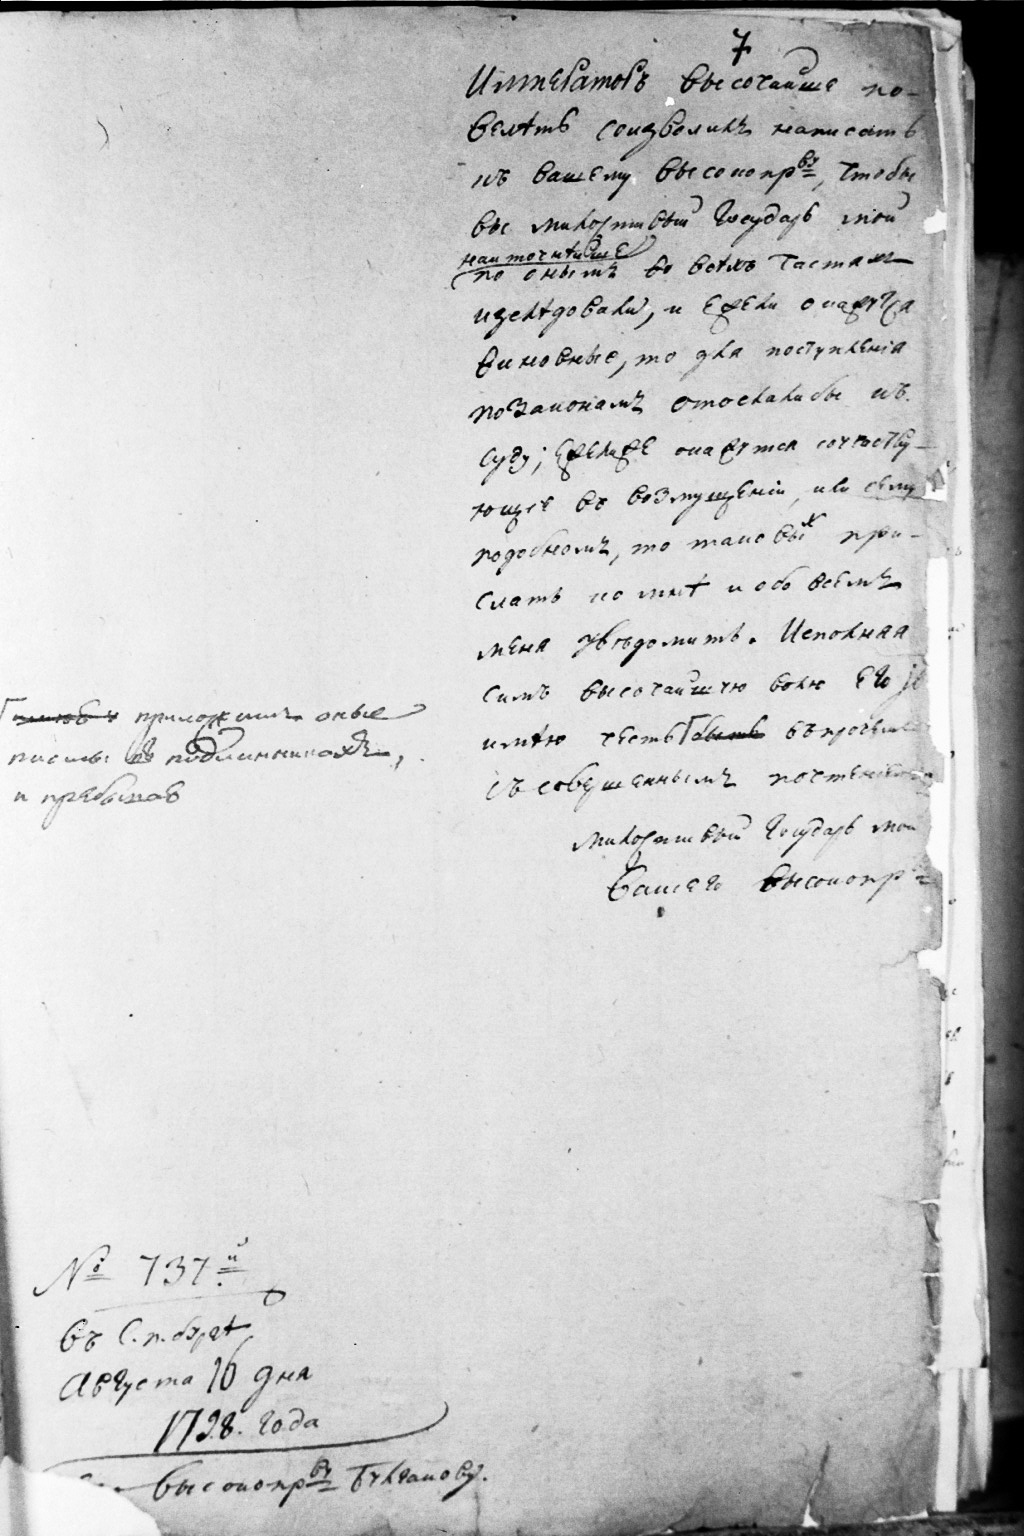 7
Императоръ высочайше по-
велѣть соизволилъ написать
къ вашему высокопр-ву, чтобы
вы милостивый Государь мой
наиточнѣйше
по онымъ во всѣхъ частяхъ
изслѣдовали, и ежели окажутся
виновные, то для поступленія
по законамъ отослали бы къ
суду; ежели же окажутся соучаству-
ющіе въ возмущеніи, или сему
подобномъ, то таковыхъ при-
слать ко мнѣ и обо всемъ
меня увѣдомить. Исполняя
симъ высочайшую волю его
имѣю честь быть въпрочемъ
съ совершеннымъ почтеніемъ
милостивый Государь мой
Вашего высокопр-ва
приложимъ оные
письмы въ подлинникахъ,
и пребывая
№ 737-й
въ С.п.бургѣ
Августа 16 дня
1798. года
высокопр-ву Булгакову.